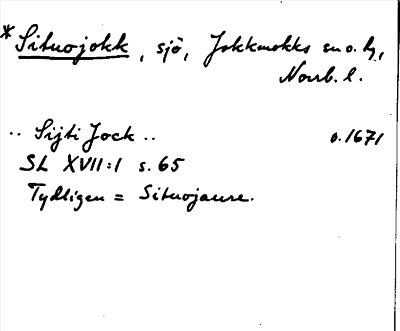 *Situojokk, sjö, Jokkmokks sn o. hd,
Norrb. l.
.. Sijti Jock ..   o. 1671
SL XVII:1 s. 65
Tydligen = Situojaure.